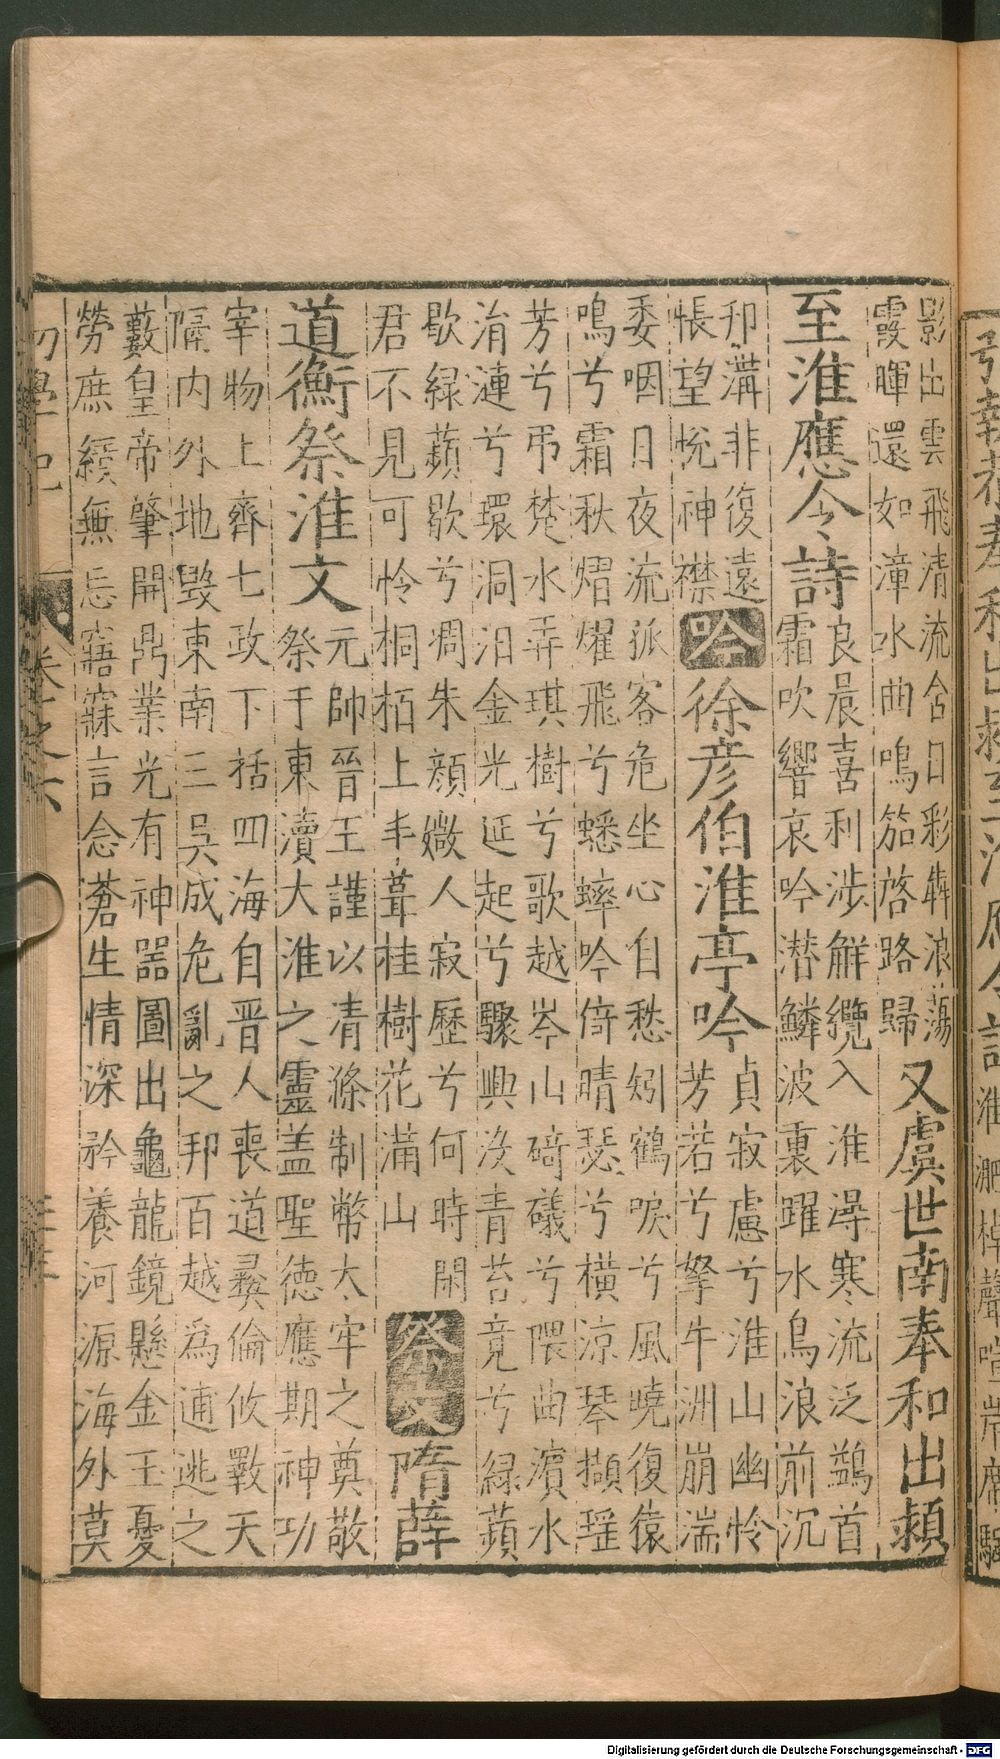 影出雲飛清流含日彩犇浪蕩
霞暉還如漳水曲鳴笳啓路歸
又虞世南奉和出潁
至淮應令詩
良晨喜利涉解纜入淮潯寒流泛鷁首
霜吹響哀吟潜鱗波裏躍水鳥浪前沉
邗溝非復遠
悵望悅神襟
吟
徐彦伯淮亭吟
貞寂慮兮淮山幽怜
芳若兮拏牛洲崩湍
委咽日夜流孤客危坐心自愁矧鶴唳兮風曉復猿
鳴兮霜秋熠燿飛兮蟋蟀吟倚晴瑟兮橫涼琴擷瑶
芳兮弔楚水弄琪樹兮歌越岑山碕礒兮隈曲濱水
淯漣兮環洞汨金光延起兮驟興沒青苔竟兮緑蘋
歇緑蘋歇兮凋朱顔媺人寂歷兮何時閑
君不見可怜桐栢上丰茸桂樹花滿山
祭文
隋薛
道衡祭淮文
元帥晉王謹以清滌制幣太牢之奠敬
祭于東瀆大淮之靈盖聖徳應期神功
宰物上齊七政下括四海自晋人喪道彛倫攸斁天
隔内外地毀東南三吴成危亂之邦百越爲逋逃之
藪皇帝肇開鼎業光有神噐圖出龜龍鏡懸金玉憂
勞庶績無忘寤寐言念蒼生情深矜養河源海外莫
卷之六